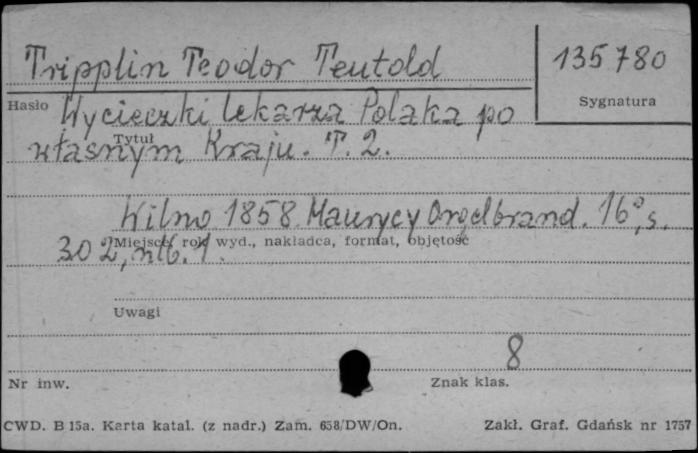 Tripplin Teodor Teutold
135780
Hasło
Sygnatura
Wycieczki lekarza Polaka po
Tytuł
własnym Kraju. T. 2.
Wilno 1858. Maurycy Orgelbrand. 16°, s.
Miejsce, rok wyd., nakładca, format, objętość
302, nlb. 1.
Uwagi
8
Nr inw.
Znak klas.
CWD. B 15a. Karta katal. (z nadr.) Zam. 658/DW/On.
Zakł. Graf. Gdańsk nr 1757